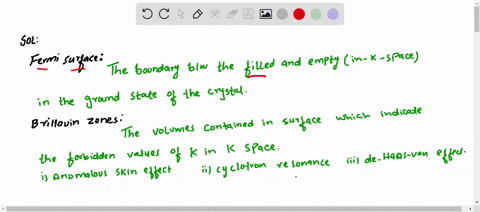 Sol:
Fermi surface: The boundary blw the filled and empty (in-k-space)
in the ground state of the crystal.
Brillouin zones: The volumes contained in surface which indicate
the forbidden values of k in k space.
i) Anomalous skin effect ii) cyclotron resonance iii) de-Haas-van effect.